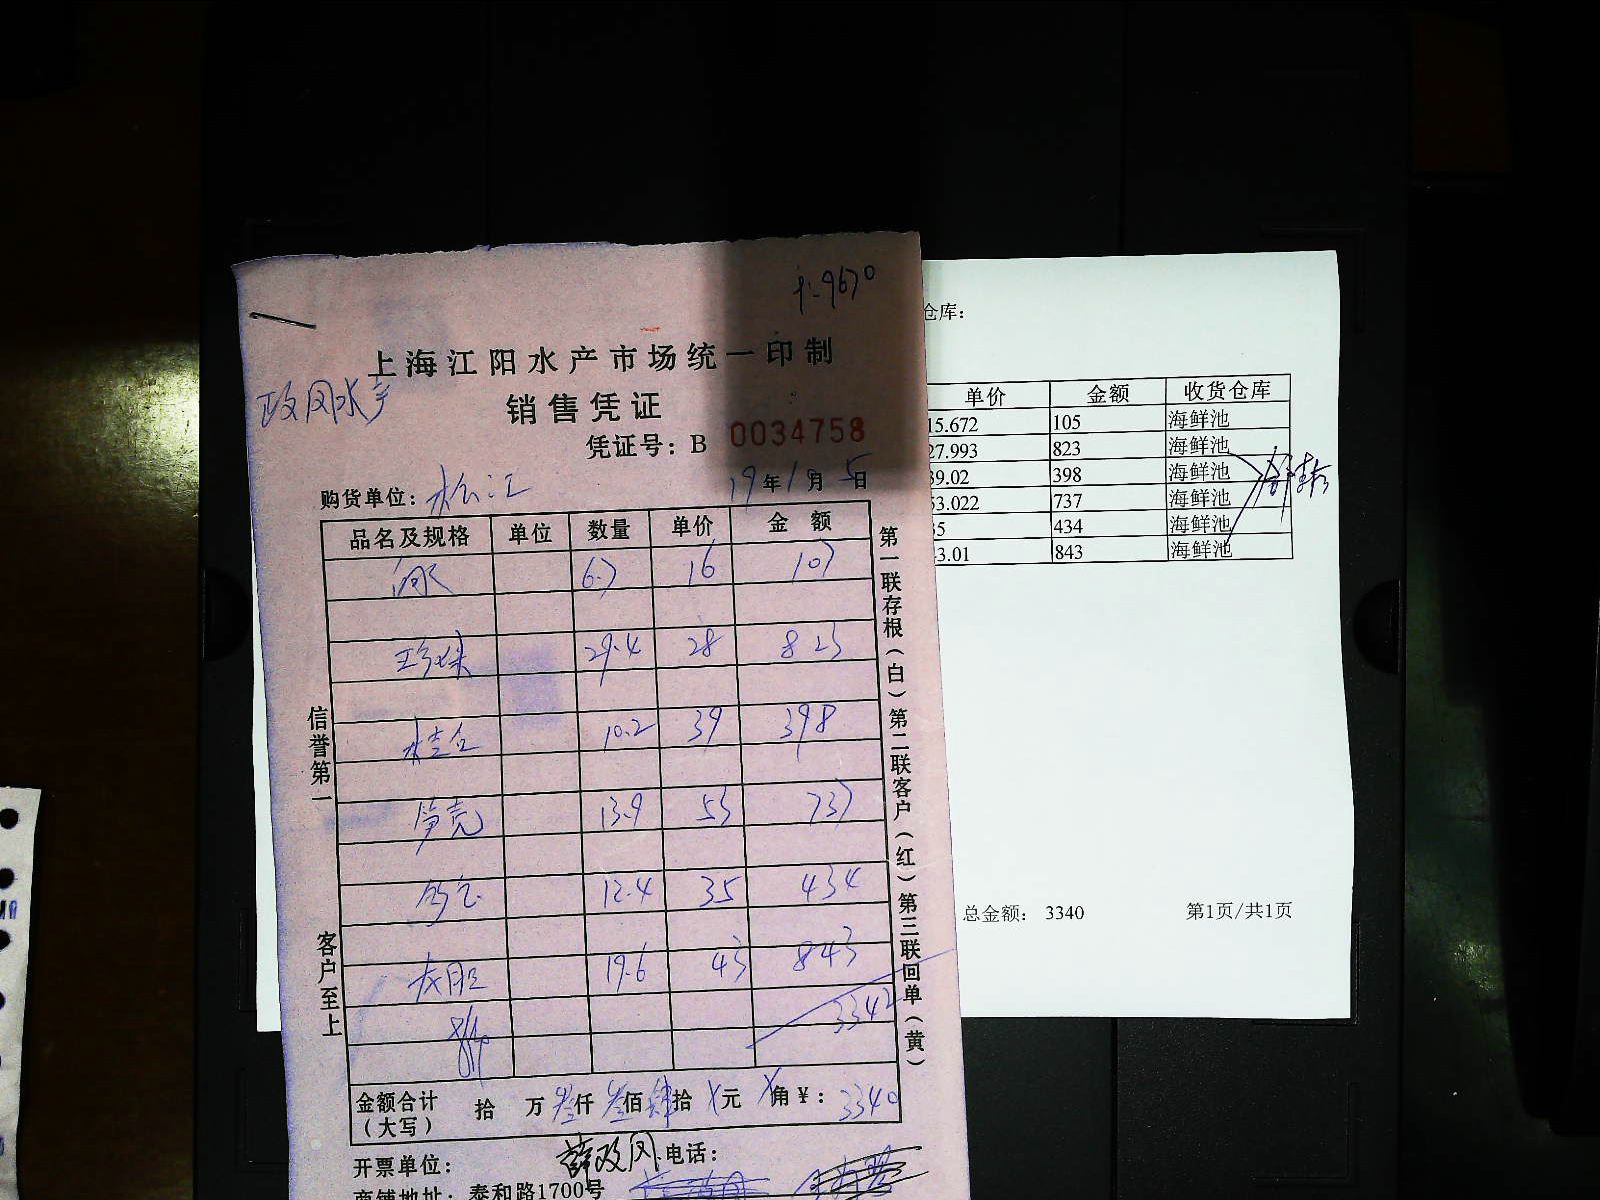 上海江阳水产市场统一印制
政风水产
销售凭证
凭证号：B 0034758
购货单位：松江 19年1月5日
品名及规格 单位 数量 单价 金额
6.7 16 107
珍珠 29.4 28 823
桂鱼 10.2 39 398
笋壳 13.9 53 737
12.4 35 434
19.6 43 843
3342
金额合计（大写） 拾 万 叁仟 叁佰 肆拾 X元 X角 ￥：3340
开票单位：薛政风 电话：
商铺地址：泰和路1700号
信誉第一
客户至上
第一联存根（白）第二联客户（红）第三联回单（黄）
仓库：
单价 金额 收货仓库
15.672 105 海鲜池
27.993 823 海鲜池
39.02 398 海鲜池
53.022 737 海鲜池
35 434 海鲜池
43.01 843 海鲜池
总金额： 3340 第1页/共1页